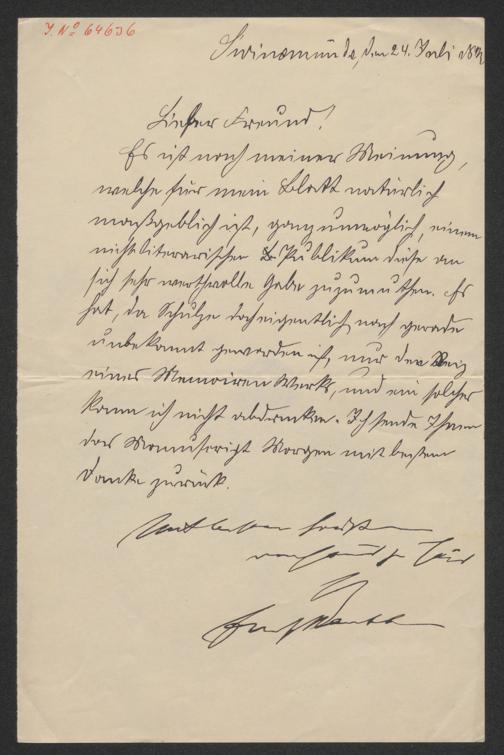 J. No 64636
Swinemünde, den 24. Juli 189
Lieber Freund!
Es ist nach meiner Meinung,
welche für mein Blatt natürlich
maßgeblich ist, ganz unmöglich, einem
nichtliterarischen Publikum diese an
sich sehr werthvolle Gabe zuzumuthen. Es
hat, da Schulze doch eigentlich nach gerade
unbekannt geworden ist, nur den Reiz
eines Memoiren Werks, und ein solches
kann ich nicht abdrucken. Ich sende Ihnen
das Manuscript Morgen mit bestem
Danke zurück.
Mit besten
Ihr